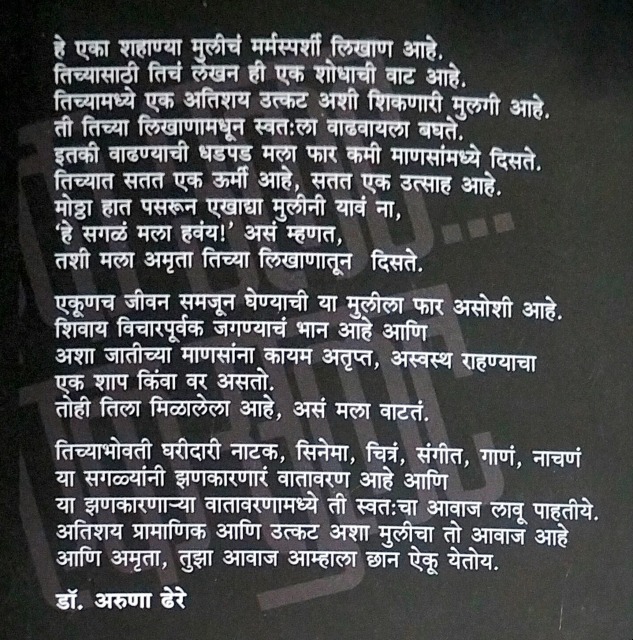 हे एका शहाण्या मुलीचं मर्मस्पर्शी लिखाण आहे.
तिच्यासाठी तिचं लेखन ही एक शोधाची वाट आहे.
तिच्यामध्ये एक अतिशय उत्कट अशी शिकणारी मुलगी आहे.
ती तिच्या लिखाणामधून स्वतःला वाढवायला बघते.
इतकी वाढण्याची धडपड मला फार कमी माणसांमध्ये दिसते.
तिच्यात सतत एक ऊर्मी आहे, सतत एक उत्साह आहे.
मोठ्ठा हात पसरून एखाद्या मुलीनी यावं ना,
‘हे सगळं मला हवंय!’ असं म्हणत,
तशी मला अमृता तिच्या लिखाणातून दिसते.
एकूणच जीवन समजून घेण्याची या मुलीला फार असोशी आहे.
शिवाय विचारपूर्वक जगण्याचं भान आहे आणि
अशा जातीच्या माणसांना कायम अतृप्त, अस्वस्थ राहण्याचा
एक शाप किंवा वर असतो.
तोही तिला मिळालेला आहे, असं मला वाटतं.
तिच्याभोवती घरीदारी नाटक, सिनेमा, चित्रं, संगीत, गाणं, नाचणं
या सगळ्यांनी झणकारणारं वातावरण आहे आणि
या झणकारणाऱ्या वातावरणामध्ये ती स्वतःचा आवाज लावू पाहतीये.
अतिशय प्रामाणिक आणि उत्कट अशा मुलीचा तो आवाज आहे
आणि अमृता, तुझा आवाज आम्हाला छान ऐकू येतोय.
डॉ. अरुणा ढेरे